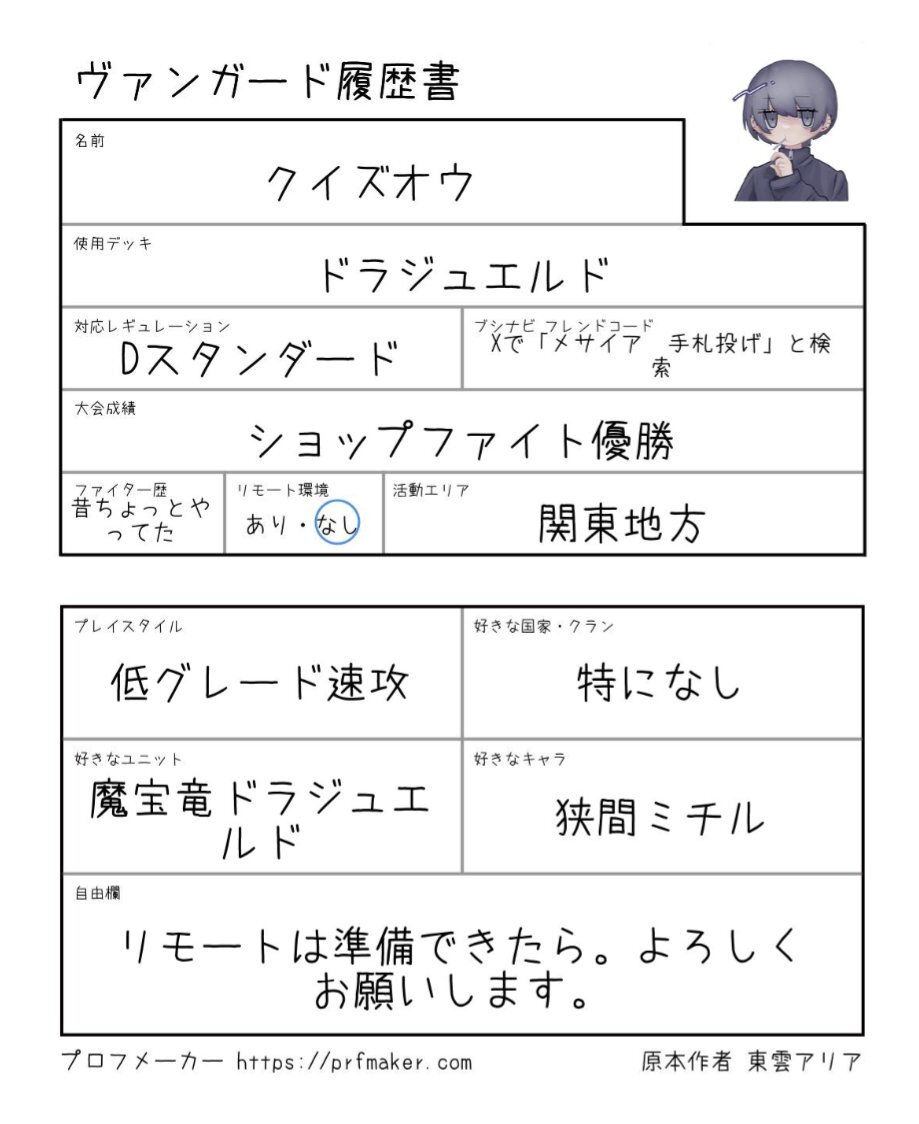 ヴァンガード履歴書
名前
クイズオウ
使用デッキ
ドラジュエルド
対応レギュレーション
Dスタンダード
ブシナビ フレンドコード
Xで「メサイア　手札投げ」と検
索
大会成績
ショップファイト優勝
ファイター歴
昔ちょっとや
ってた
リモート環境
あり・なし
活動エリア
関東地方
プレイスタイル
低グレード速攻
好きな国家・クラン
特になし
好きなユニット
魔宝竜ドラジュエ
ルド
好きなキャラ
狭間ミチル
自由欄
リモートは準備できたら。よろしく
お願いします。
プロフメーカー https://prfmaker.com
原本作者 東雲アリア